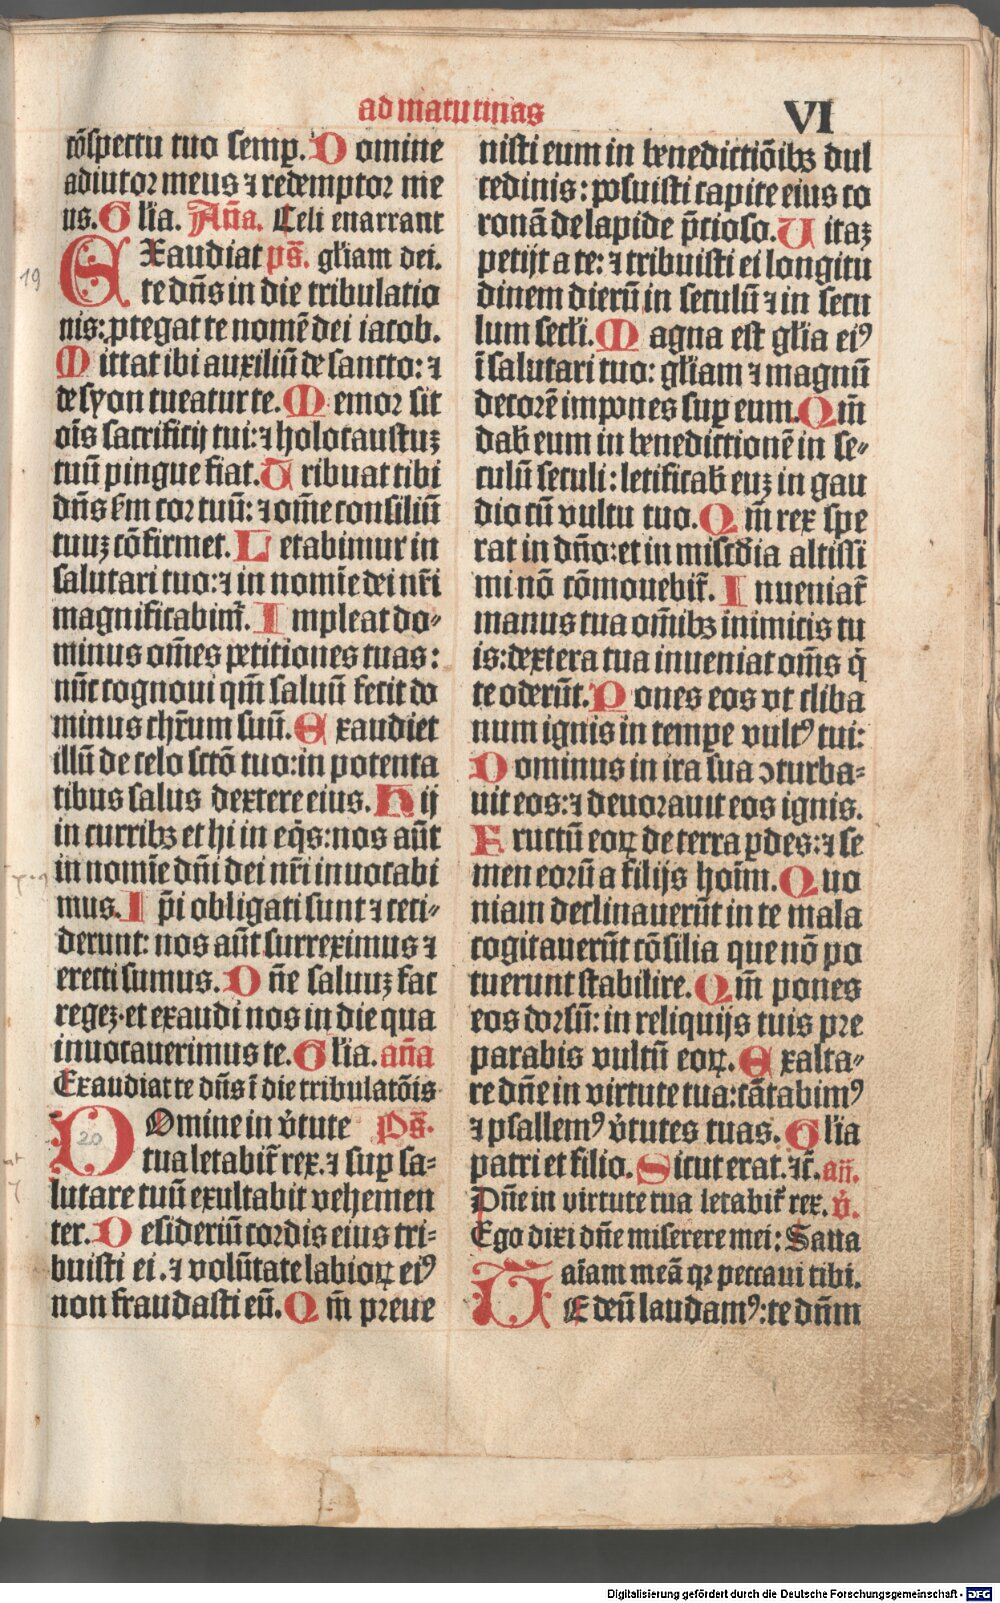 ad matutinas
VI
cōspectu tuo semꝑ. Domine
adiutor meus ⁊ redemptor me
us. Gl̄ia. Aña. Celi enarrant
Exaudiat ps̄. gl̄iam dei.
te dn̄s in die tribulatio
nis: ꝓtegat te nomē dei iacob.
Mittat tibi auxiliū de sancto: ⁊
de syon tueatur te. Memor sit
oīs sacrificij tui: ⁊ holocaustuꝫ
tuū pingue fiat. Tribuat tibi
dn̄s ẜm cor tuū: ⁊ om̄e consiliū
tuuꝫ cōfirmet. Letabimur in
salutari tuo: ⁊ in nomīe dei nr̄i
magnificabimr̄. Impleat do⸗
minus om̄es petitiones tuas:
nūc cognoui qm̄ saluū fecit do
minus chr̄um suū. Exaudiet
illū de celo sctō tuo: in potenta
tibus salus dextere eius. Hij
in curribꝫ et hi in eq̄s: nos aūt
in nomīe dn̄i dei nr̄i inuocabi
mus. Ip̄i obligati sunt ⁊ ceci⸗
derunt: nos aūt surreximus ⁊
erecti sumus. Dn̄e saluuꝫ fac
regeꝫ. et exaudi nos in die qua
inuocauerimus te. Gl̄ia. añа
Exaudiat te dn̄s ī die tribulatōis
Domine in v̄tute Ps̄.
tua letabit̄ rex. ⁊ suꝑ sa⸗
lutare tuū exultabit vehemen
ter. Desideriū cordis eius tri⸗
buisti ei. ⁊ volūtate labioꝝ eiꝰ
non fraudasti eū. Qm̄ preue
nisti eum in benedictiōibꝫ dul
cedinis: posuisti capite eius co
ronā de lapide p̄cioso. Uitaꝫ
petijt a te: ⁊ tribuisti ei longitu
dinem dierū in seculū ⁊ in secu
lum secl̄i. Magna est gl̄ia eiꝰ
ī salutari tuo: gl̄iam ⁊ magnū
decorē impones suꝑ eum. Qm̄
dab̄ eum in benedictionē in se⸗
culū seculi: letificab̄ euꝫ in gau
dio cū vultu tuo. Qm̄ rex spe
rat in dn̄o: et in miscd̄ia altissi
mi nō cōmouebit̄. Inueniat̄
manus tua om̄ibꝫ inimicis tu
is: dextera tua inueniat om̄s q̄
te oderūt. Pones eos vt cliba
num ignis in tempe vultꝰ tui:
Dominus in ira sua ↄturba⸗
uit eos: ⁊ deuorauit eos ignis.
Fructū eoꝝ de terra ꝑdes: ⁊ se
men eorū a filijs hoīm. Quo
niam declinauerūt in te mala
cogitauerūt cōsilia que nō po
tuerunt stabilire. Qm̄ pones
eos dorsū: in reliquijs tuis pre
parabis vultū eoꝝ. Exalta⸗
re dn̄e in virtute tua: cātabimꝰ
⁊ psallemꝰ v̄tutes tuas. Gl̄ia
patri et filio. Sicut erat. ⁊c̄. añ.
Dn̄e in virtute tua letabit̄ rex. v̄.
Ego dixi dn̄e miserere mei: Sana
aīam meā qꝛ peccaui tibi.
TE deū laudamꝰ: te dn̄m
19
20
Digitalisierung gefördert durch die Deutsche Forschungsgemeinschaft - DFG